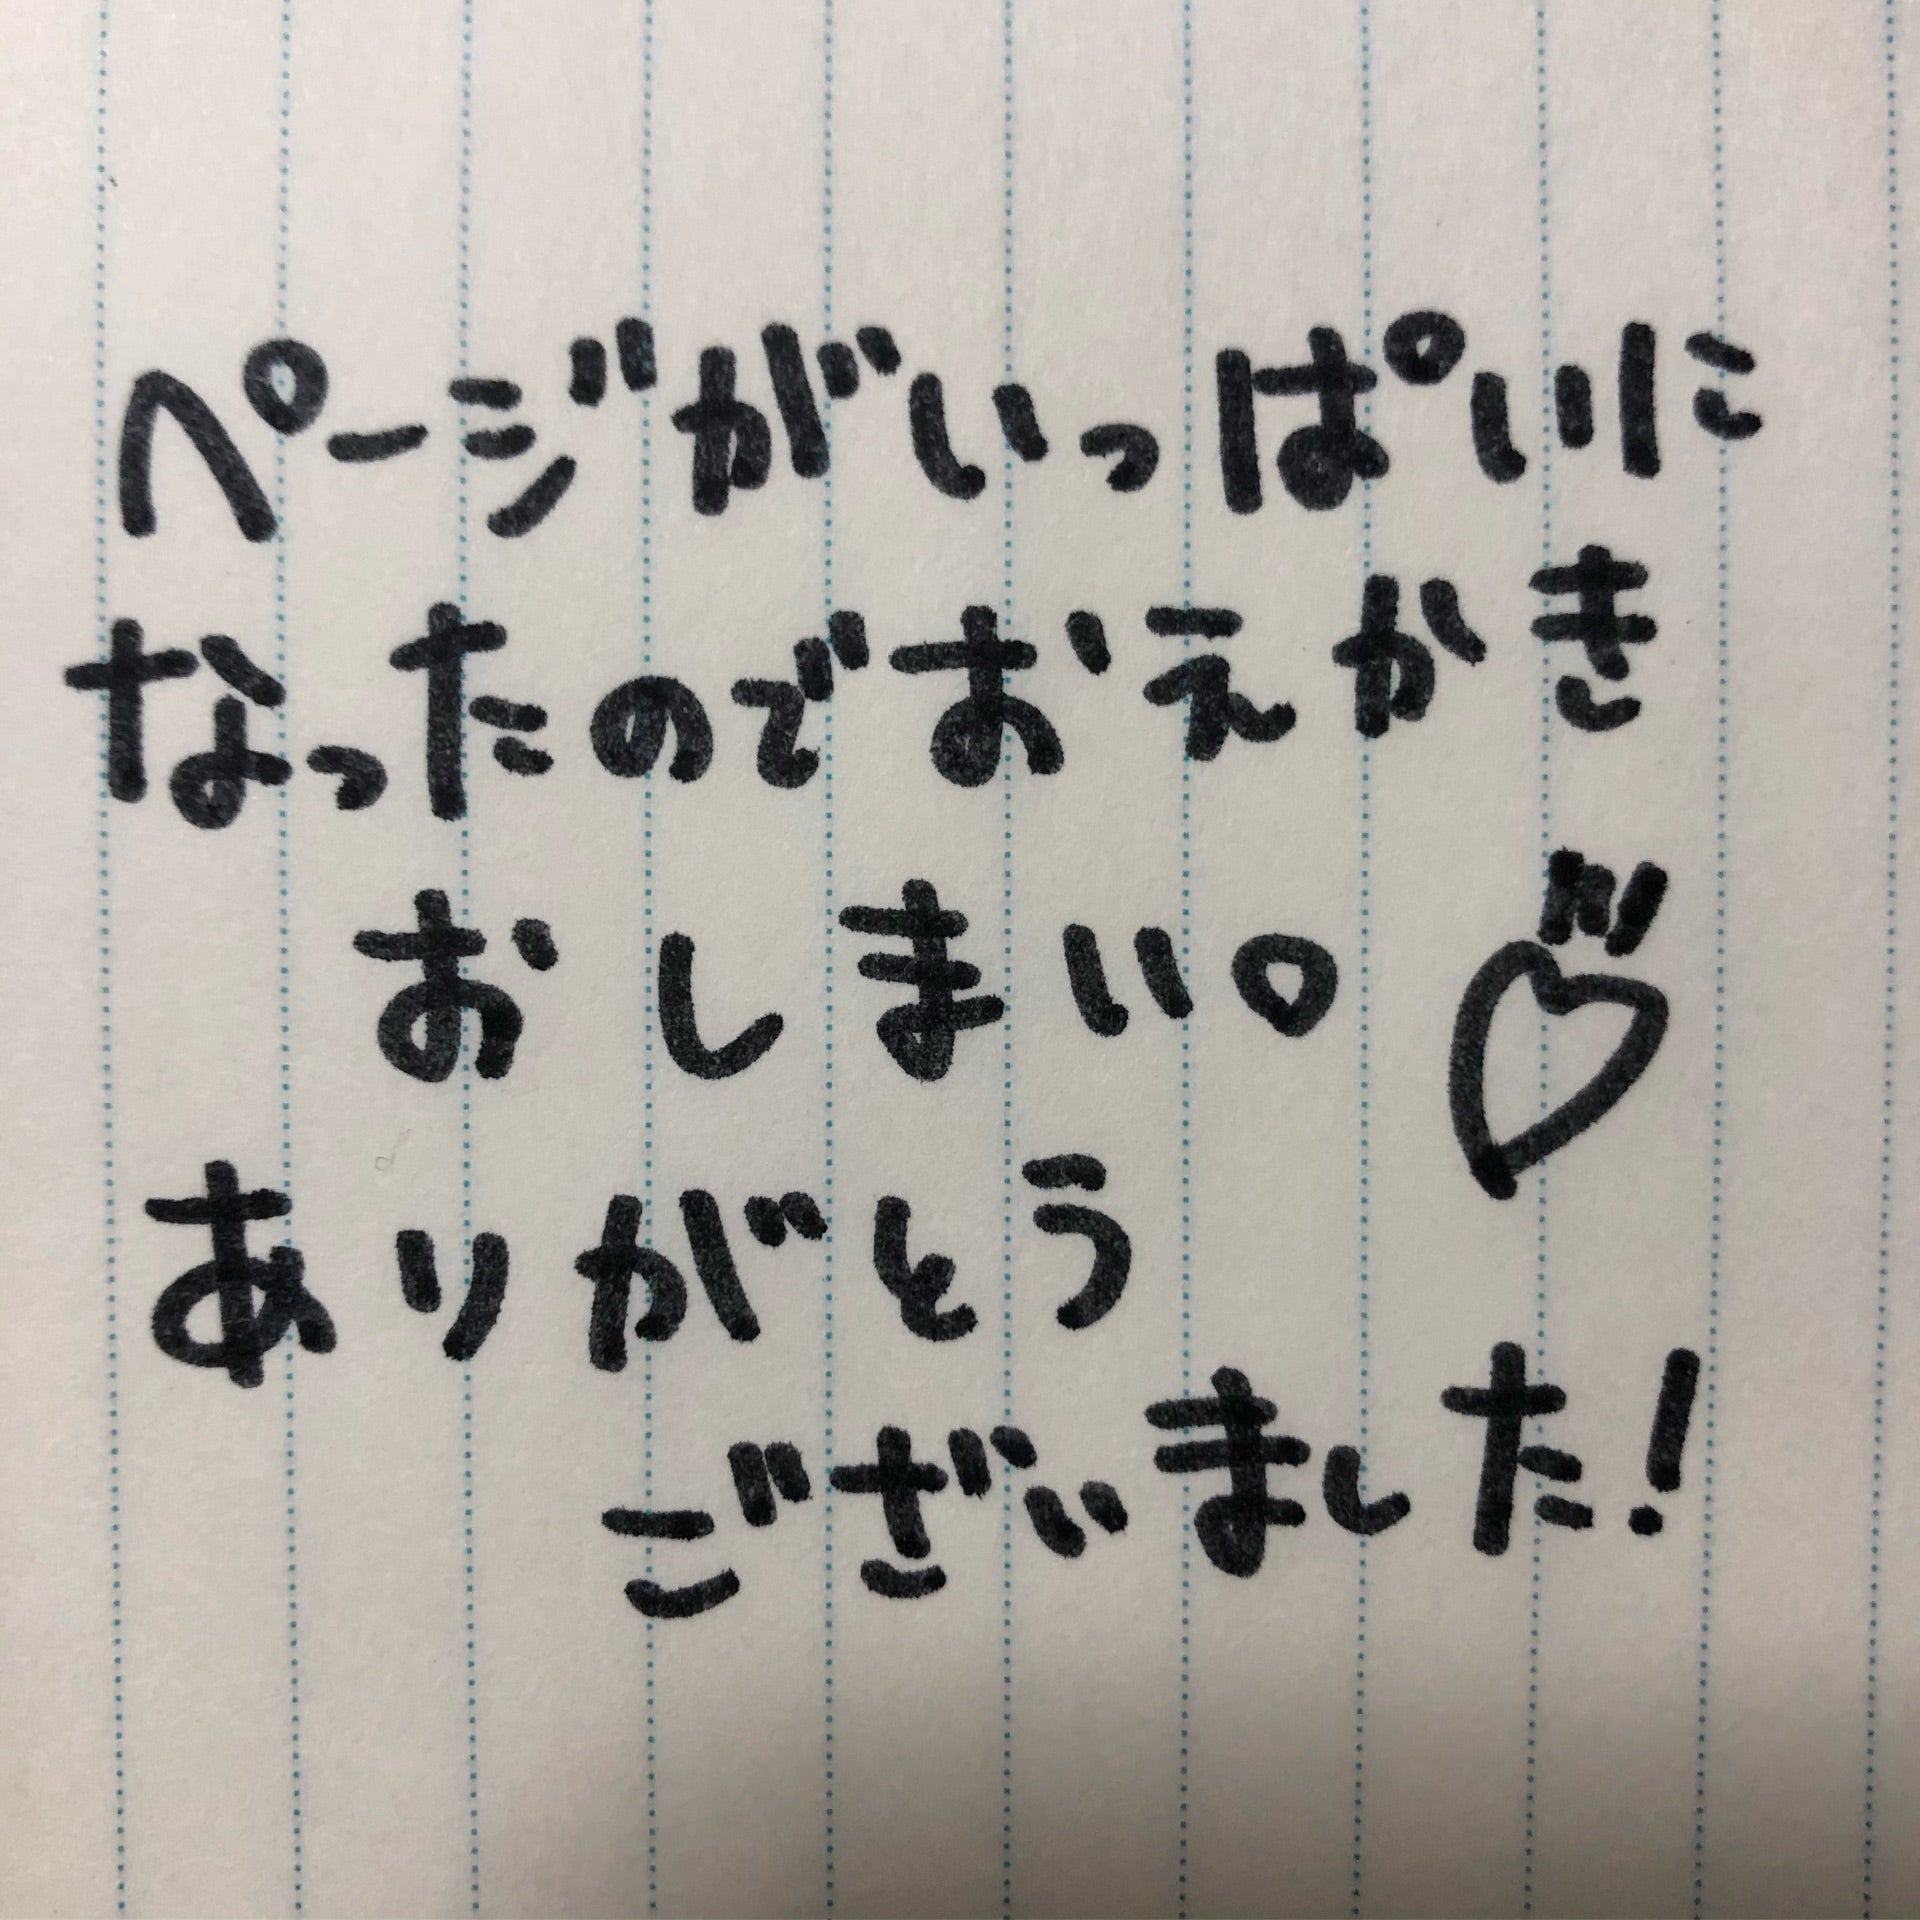 ページがいっぱいに
なったのでおえかき
おしまい。♡
ありがとう
ございました!